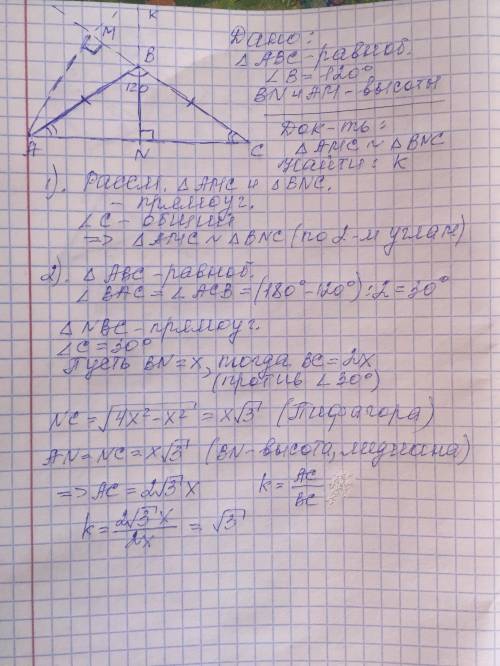 M
K
B
120
A
N
C
Дано:
△ABC - равноб.
∠B = 120°
BN и AM - высоты
Док-ть:
△AMC ~ △BNC
Найти: k
1). Рассм. △AMC и △BNC.
- прямоуг.
∠C - общий
=> △AMC ~ △BNC (по 2-м углам)
2). △ABC - равноб.
∠BAC = ∠ACB = (180° - 120°) : 2 = 30°
△NBC - прямоуг.
∠C = 30°
Пусть BN = x, тогда BC = 2x
(против ∠30°)
NC = √4x² - x² = x√3 (Пифагора)
AN = NC = x√3 (BN - высота, медиана)
=> AC = 2√3 x   k = AC/BC
k = 2√3 x/2x = √3